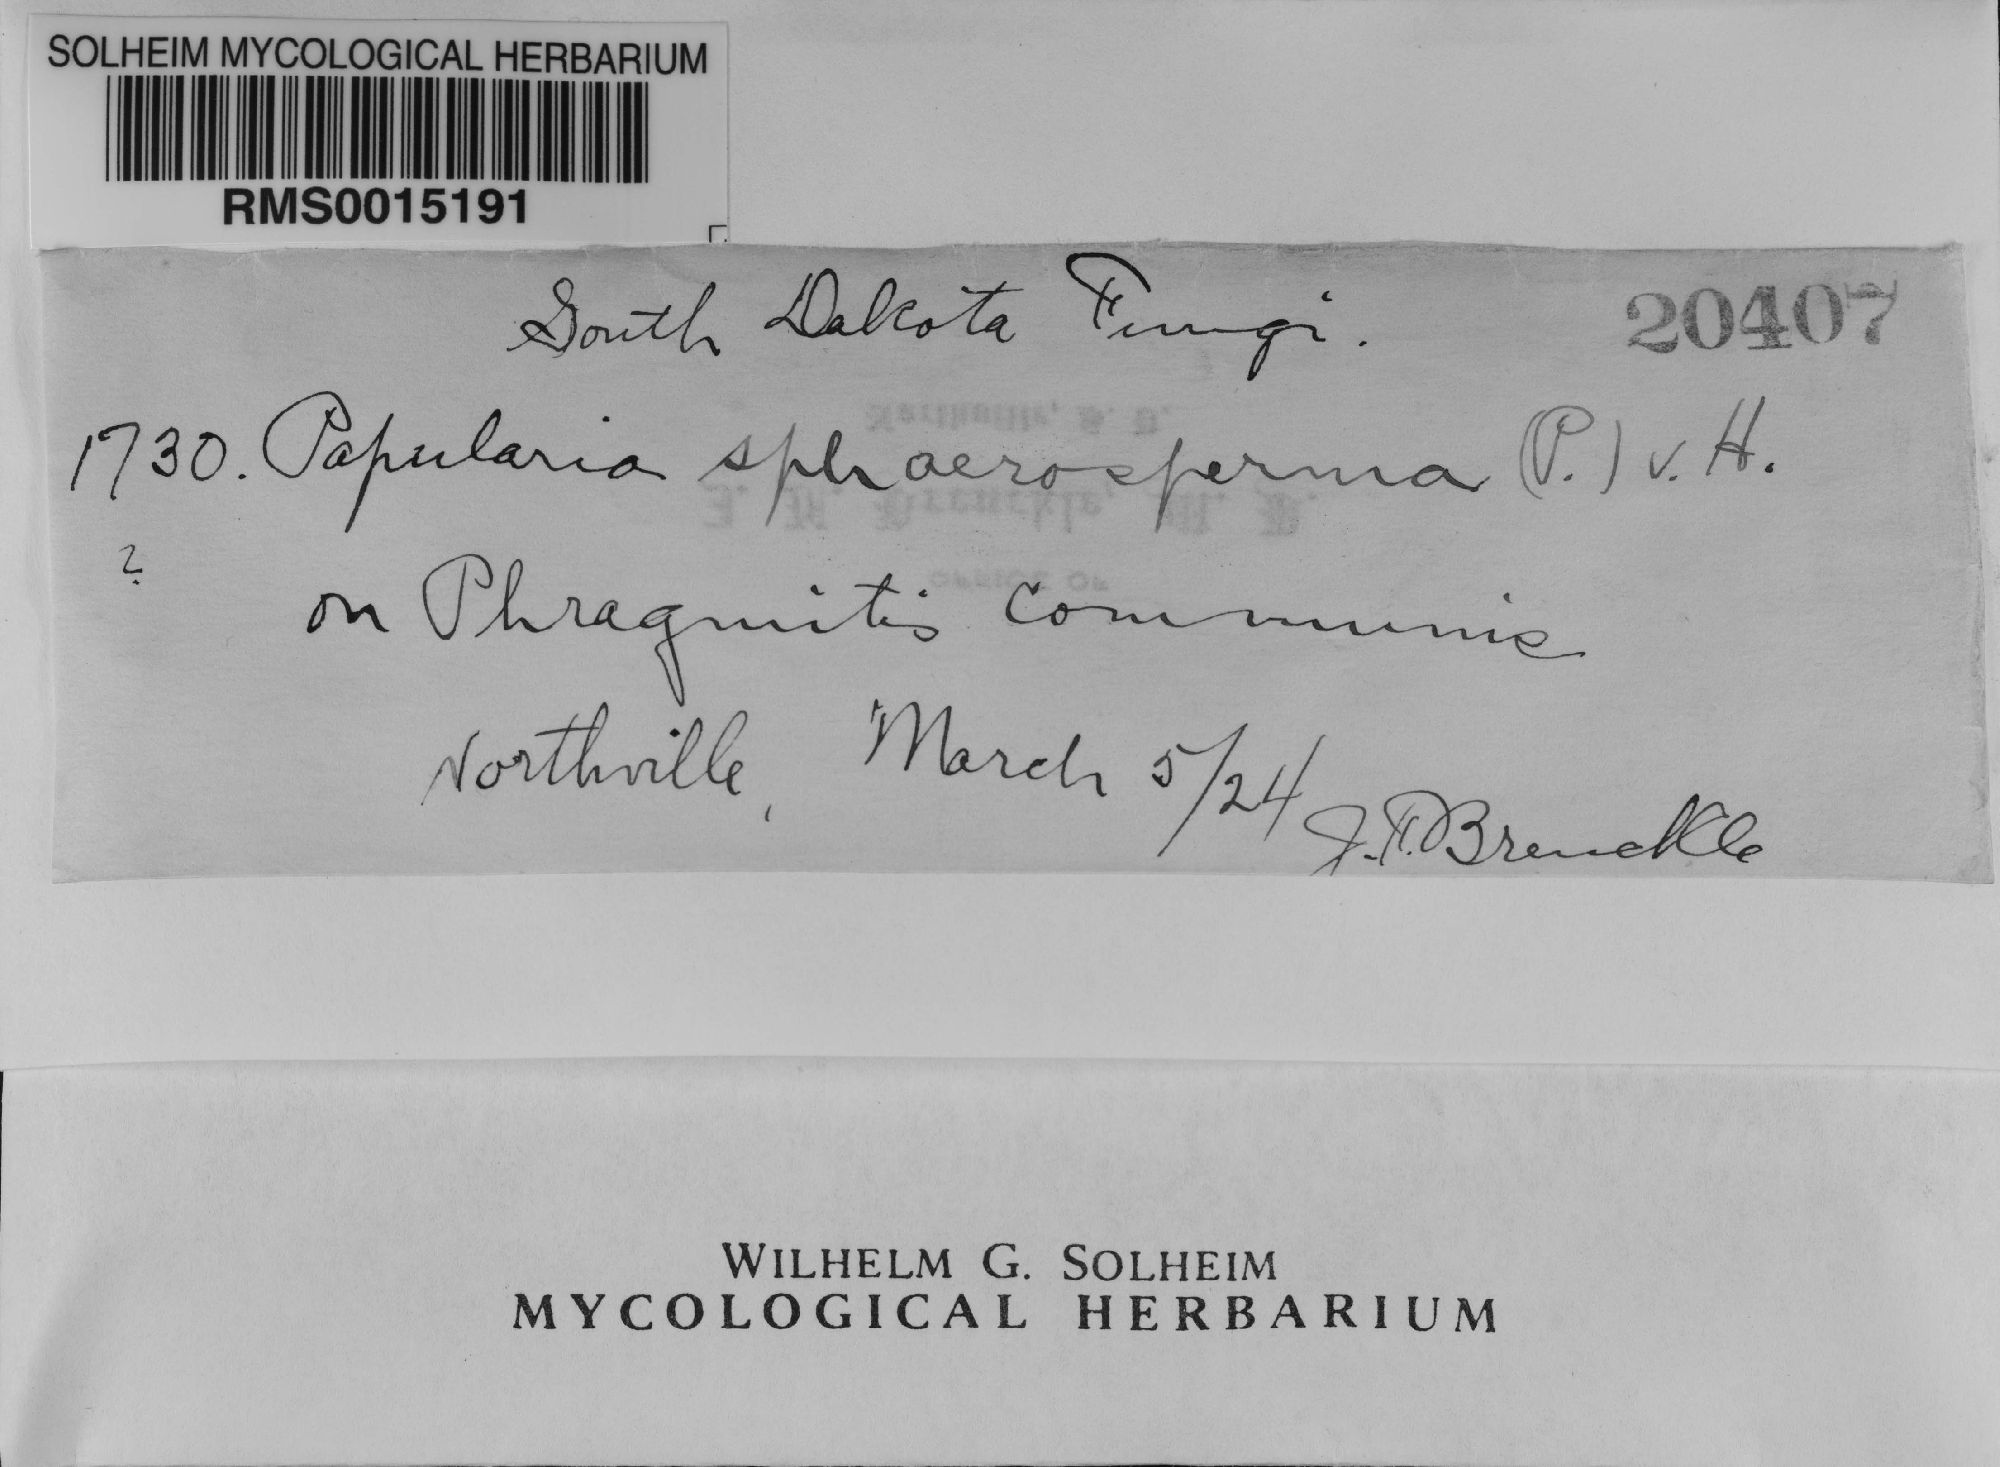 SOLHEIM MYCOLOGICAL HERBARIUM
RMS0015191
South Dakota Fungi.
20407
1730. Papularia sphaerosperma (P.) v. H.
?
on Phragmitis communis
Northville, March 5/24
J.F. Brenckle
Northville, S. D.
J. F. Brenckle, M. D.
OFFICE OF
WILHELM G. SOLHEIM
MYCOLOGICAL HERBARIUM